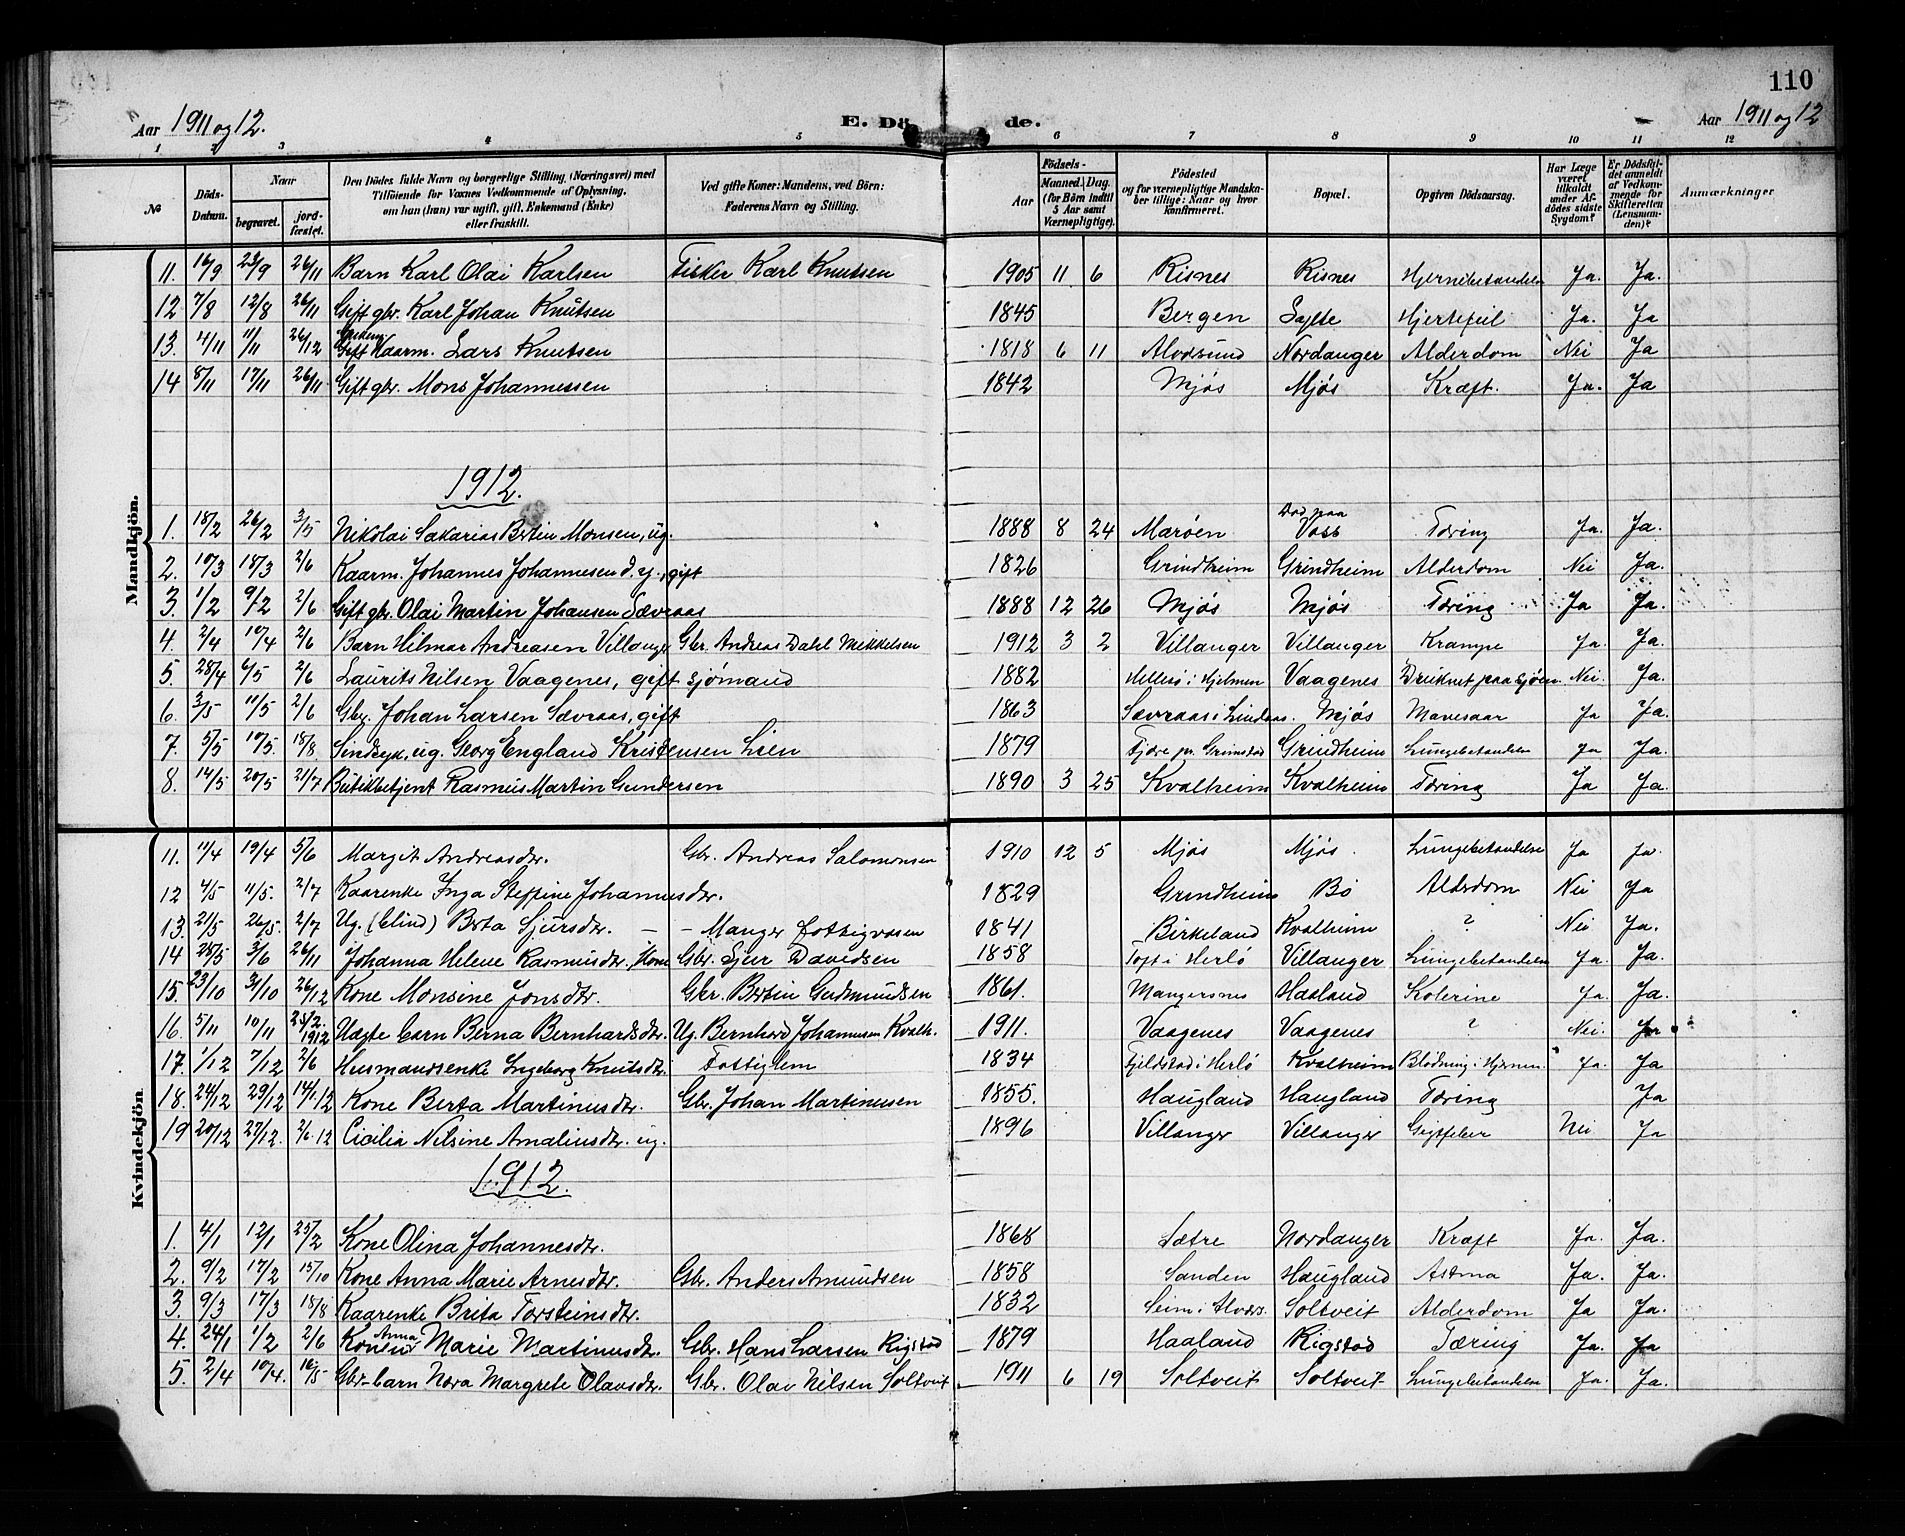 110
Aar 1911 og 12. E. Dö de. Aar 1911 og 12
1 2 3 4 5 6 7 8 9 10 11 12
№ Döds-Datum. Naar begravet. jord-fæstet. Den Dödes fulde Navn og borgerlige Stilling, (Næringsvei) med Tilföiende for Voxnes Vedkommende af Oplysning, om han (hun) var ugift, gift, Enkemand (Enke) eller fraskilt. Ved gifte Koner: Mandens, ved Börn: Faderens Navn og Stilling. Aar Födsels- Maaned. Dag. (for Börn indtil 5 Aar samt Værnepligtige). Födested og for værnepligtige Mandskaber tillige: Naar og hvor konfirmeret. Bopæl. Opgiven Dödsaarsag. Har Læge været tilkaldt under Afdödes sidste Sygdom? Er Dödsfaldet anmeldt af Vedkommende for Skifteretten (Lensmanden)? Anmærkninger
Mandkjön.
11. 16/9 23/9 26/11 Barn Karl Olai Karlsen Fisker Karl Knutsen 1905 11 6 Risnes Risnes Hjernebetændelse Ja. Ja.
12 7/8 12/8 26/11 Gift gbr. Karl Johan Knutsen 1845 Bergen Sylte Hjertefeil Ja. Ja
13. 4/11 11/11 26/12 Gift Kaarm. Lars Knutsen 1818 6 11 Alvdsund Nordanger Alderdom Nei Ja
14 8/11 17/11 26/11 Gift gbr. Mons Johannessen 1842 Mjøs Mjøs Kræft. Ja. Ja
1912.
1. 18/2 26/2 3/5 Nikolai Sakarias Bertin Monsen, ug. 1888 8 24 Marøen Død paa Voss Tæring Ja. Ja.
2. 10/3 18/3 2/6 Kaarm. Johannes Johannesen d. y., gift 1826 Grindheim Grindheim Alderdom Nei Ja.
3. 1/2 9/2 2/6 Gift gbr. Olai Martin Johansen Sævraas 1888 12 26 Mjøs Mjøs Tæring Ja Ja.
4. 2/4 10/4 2/6 Barn Hilmar Andreasen Villange Gbr. Andreas Dahl Mikkelsen 1912 3 2 Villanger Villanger Krampe Ja Ja.
5. 28/4 6/5 2/6 Laurits Nilsen Vaagenes, gift sjømand 1882 Hellesø i Hjelmen Vaagenes Druknet paa sjøen. Nei. Ja.
6. 3/5 11/5 2/6 Gbr. Johan Larsen Sævraas, gift 1863 Sævraas i Lindaas. Mjøs Mavesaar Ja Ja.
7. 5/5 10/5. 18/8 Sindsyk, ug. Georg England Kristensen Lien 1879 Fjære pr. Grimstad Grindheim Lungebetændelse Ja Ja.
8. 14/5 20/5 21/7 Butikbetjent Rasmus Martin Gundersen 1890 3 25 Kvalheim Kvalheim Tæring Ja Ja.
Kvindekjön
11. 11/4 19/4 5/6 Margit Andreasdtr. Gbr. Andreas Salomonsen 1910 12 5 Mjøs Mjøs. Lungebetændelse Ja Ja.
12 4/5 11/5. 2/7 Kaarenke Inga Steffine Johannesdtr. 1829 Grindheim Bø Alderdom Nei Ja
13. 21/5 26/5. 2/7 Ug. (blind) Berta Sjursdtr. — - Manger Fattigvæsen 1841 Birkeland Kvalheim ? Nei Ja.
14 28/5 3/6 26/11 Johanna Helene Rasmusdtr., Kone Gbr. Sjur Davidsen 1858 Toft i Herlø Villanger Lungebetændelse Ja. Ja.
15. 23/10 31/10 26/12 Kone Monsine Jonsdtr. Gbr. Bertin Gudmundsen 1861. Mangersnes Haaland Kolerine Ja. Ja.
16. 5/11 10/11 25/2. 1912 Uægte barn Berna Bernhardsdtr. Ug. Bernhard Johannesen Kvalh. 1911. Vaagenes Vaagenes ? Nei. Ja
17. 1/12 7/12 2/6 Husmandsenke Ingeborg Knutsdtr. Fattiglem 1834 Fjeldstad i Herlø Kvalheim Blødning i Hjernen. Ja. Ja
18. 24/12 29/12 14/1.12 Kone Berta Martinusdtr. Gbr. Johan Martinussen 1855. Haugland Haugland Tæring Ja
19 20/12 27/12. 2/6 12 Cicilia Nilsine Amaliusdtr. ug. 1896 Villanger Villanger Gigtfeber Nei Ja
1912.
1. 4/1 12/1 25/2 Kone Olina Johannesdtr. 1868 Sætre Nordanger Kræft Ja. Ja.
2. 9/2 17/2 15/10 Kone Anna Marie Arnesdtr. Gbr. Anders Amundsen 1858 Sanden Haugland Astma Ja. Ja.
3. 9/3 17/3 18/8 Kaarenke Brita Torsteinsdtr. 1832 Seim i Alvers. Soltveit Alderdom Ja Ja.
4. 24/1 1/2 2/6 Konen Anna Marie Martinusdtr. Gbr. Hans Larsen Rigstad 1879 Haaland Rigstad Tæring Ja. Ja
5. 2/4 10/4. 16/5 Gbr-barn Nora Margrete Olavsdtr. Gbr. Olav Nilsen Soltveit 1911 6 19 Soltveit Soltveit Lungebetændelse Ja. Ja.